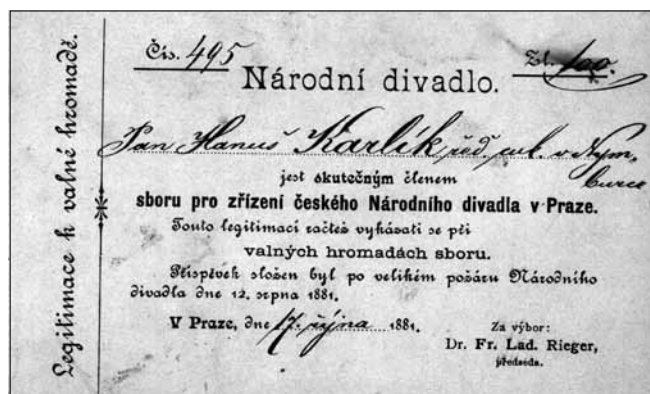 Legitimace k valné hromadě.
Čís. 495
Zl. 100
Národní divadlo.
Pan Hanuš Karlík, řed. cuk. v Nym-
burce
jest skutečným členem
sboru pro zřízení českého Národního divadla v Praze.
Touto legitimací račtež vykázati se při
valných hromadách sboru.
Příspěvek složen byl po velikém požáru Národního
divadla dne 12. srpna 1881.
V Praze, dne 17. října 1881.
Za výbor:
Dr. Fr. Lad. Rieger,
předseda.